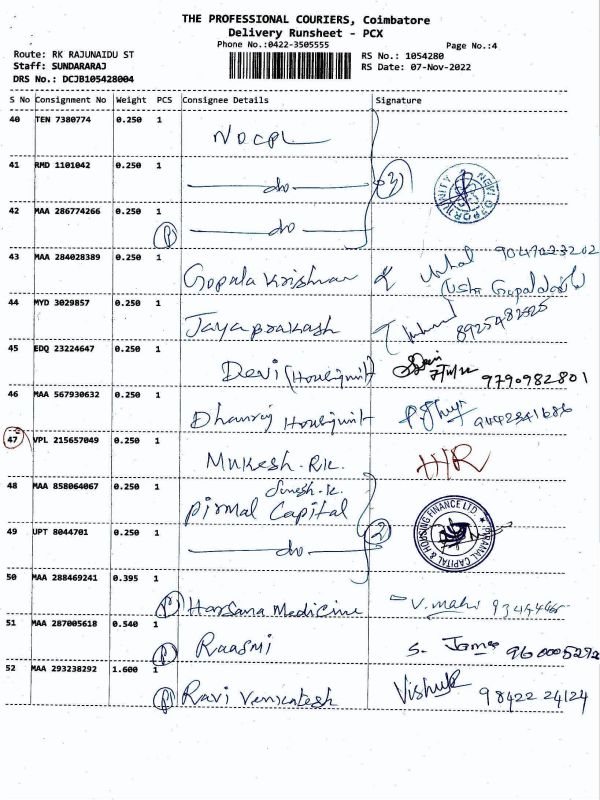 THE PROFESSIONAL COURIERS, Coimbatore
Delivery Runsheet - PCX
Phone No.:0422-3505555
Page No.:4
Route: RK RAJUNAIDU ST
RS No.: 1054280
Staff: SUNDARARAJ
RS Date: 07-Nov-2022
DRS No.: DCJB105428004
S No Consignment No Weight PCS Consignee Details Signature
40 TEN 7380774 0.250 1 NOCPL
41 RMD 1101042 0.250 1 do (3)
42 MAA 286774266 0.250 1 (P) do
43 MAA 284028389 0.250 1 Gopala Krishnan 9047023202
44 MYD 3029857 0.250 1 Jayaprakash
45 EDQ 23224647 0.250 1 Devi 9790982801
46 MAA 567930632 0.250 1 Dhanraj
47 VPL 215657049 0.250 1 Mukesh. RK. HR
48 MAA 858064067 0.250 1 Suresh. K.
Pirmal Capital
PIRAMAL CAPITAL & HOUSING FINANCE LTD
49 UPT 8044701 0.250 1 do (2)
50 MAA 288469241 0.395 1 (P) Harsana Medicine V. mahi
51 MAA 287005618 0.540 1 (P) Raasmi S. James
52 MAA 293238292 1.600 1 (P) Ravi Venkatesh 98422 24124